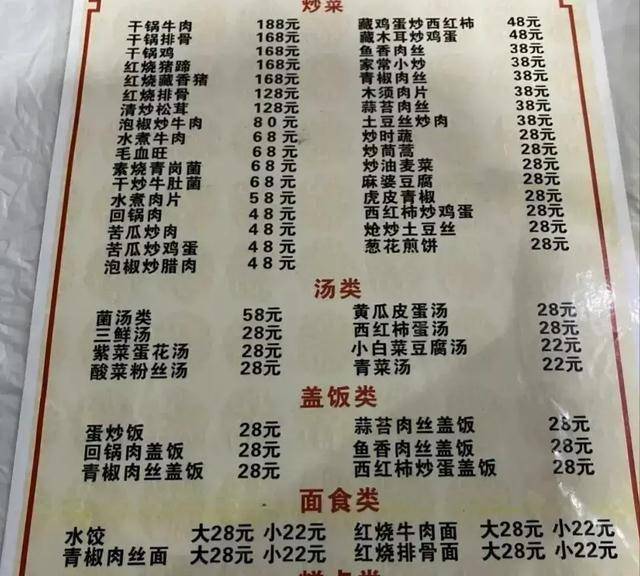 炒菜
干锅牛肉 188元
干锅排骨 168元
干锅鸡 168元
红烧猪蹄 168元
红烧藏香猪 168元
红烧排骨 128元
清炒松茸 128元
泡椒炒牛肉 80元
水煮牛肉 68元
毛血旺 68元
素烧青岗菌 68元
干炒牛肚菌 68元
水煮肉片 58元
回锅肉 48元
苦瓜炒肉 48元
苦瓜炒鸡蛋 48元
泡椒炒腊肉 48元
藏鸡蛋炒西红柿 48元
藏木耳炒鸡蛋 48元
鱼香肉丝 38元
家常小炒 38元
青椒肉丝 38元
木须肉片 38元
蒜苔肉丝 38元
土豆丝炒肉 38元
炒时蔬 28元
炒茼蒿 28元
炒油麦菜 28元
麻婆豆腐 28元
虎皮青椒 28元
西红柿炒鸡蛋 28元
炝炒土豆丝 28元
葱花煎饼 28元
汤类
菌汤类 58元
三鲜汤 28元
紫菜蛋花汤 28元
酸菜粉丝汤 28元
黄瓜皮蛋汤 28元
西红柿蛋汤 28元
小白菜豆腐汤 22元
青菜汤 22元
盖饭类
蛋炒饭 28元
回锅肉盖饭 28元
青椒肉丝盖饭 28元
蒜苔肉丝盖饭 28元
鱼香肉丝盖饭 28元
西红柿炒蛋盖饭 28元
面食类
水饺 大28元 小22元
青椒肉丝面 大28元 小22元
红烧牛肉面 大28元 小22元
红烧排骨面 大28元 小22元